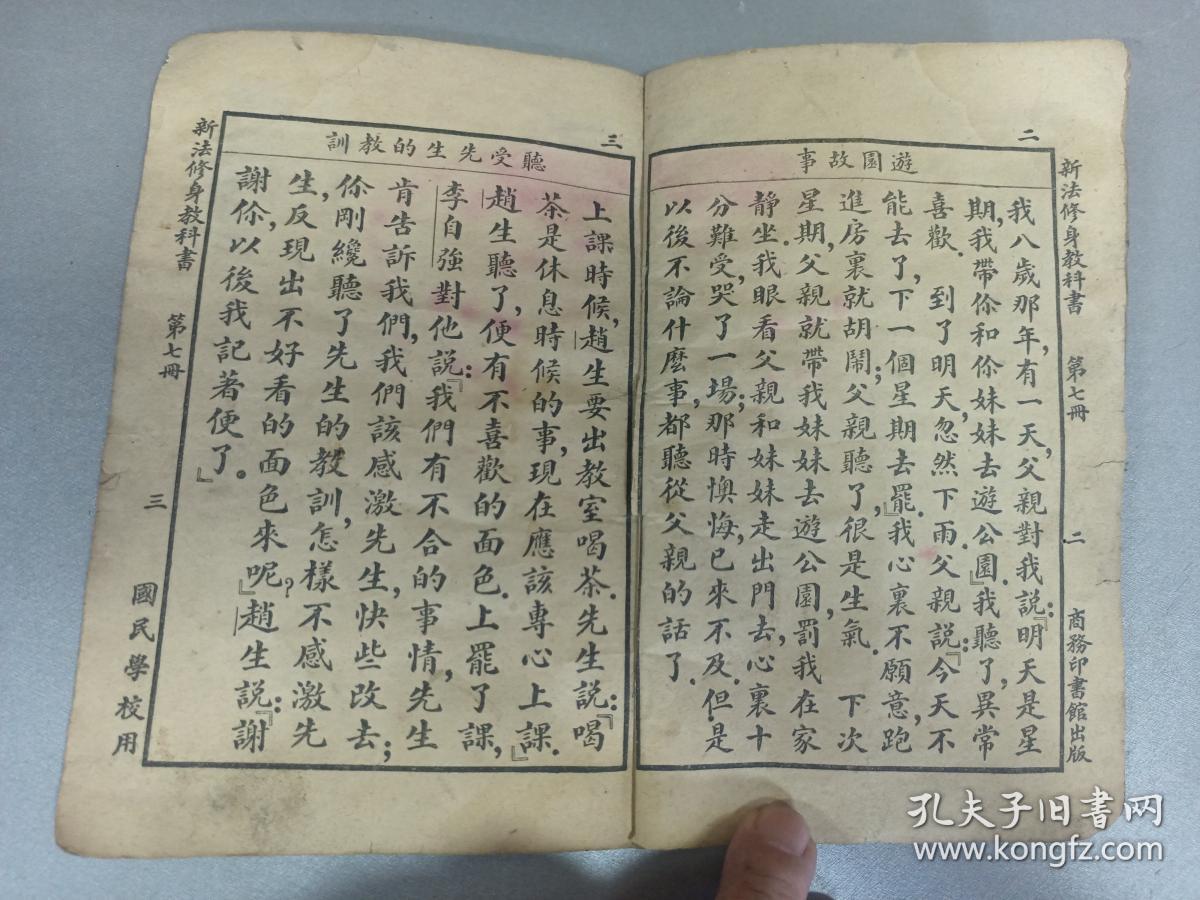 新法修身教科書 第七冊 二 商務印書館出版
二
遊園故事
我八歲那年,有一天,父親對我說:『明天是星
期,我帶你和你妹妹去遊公園.』我聽了,異常
喜歡. 到了明天,忽然下雨.父親說:『今天不
能去了,下一個星期去罷.』我心裏不願意,跑
進房裏就胡鬧;父親聽了,很是生氣. 下次
星期,父親就帶我妹妹去遊公園,罰我在家
靜坐.我眼看父親和妹妹走出門去,心裏十
分難受,哭了一場;那時懊悔,已來不及.但是
以後不論什麼事,都聽從父親的話了.
三
聽受先生的教訓
上課時候,趙生要出教室喝茶.先生說:『喝
茶是休息時候的事,現在應該專心上課.』
趙生聽了,便有不喜歡的面色.上罷了課,
李自強對他說:『我們有不合的事情,先生
肯告訴我們,我們該感激先生,快些改去;
你剛纔聽了先生的教訓,怎樣不感激先
生,反現出不好看的面色來呢?』趙生說:『謝
謝你,以後我記著便了。』
新法修身教科書 第七冊 三 國民學校用
孔夫子旧書网
www.kongfz.com